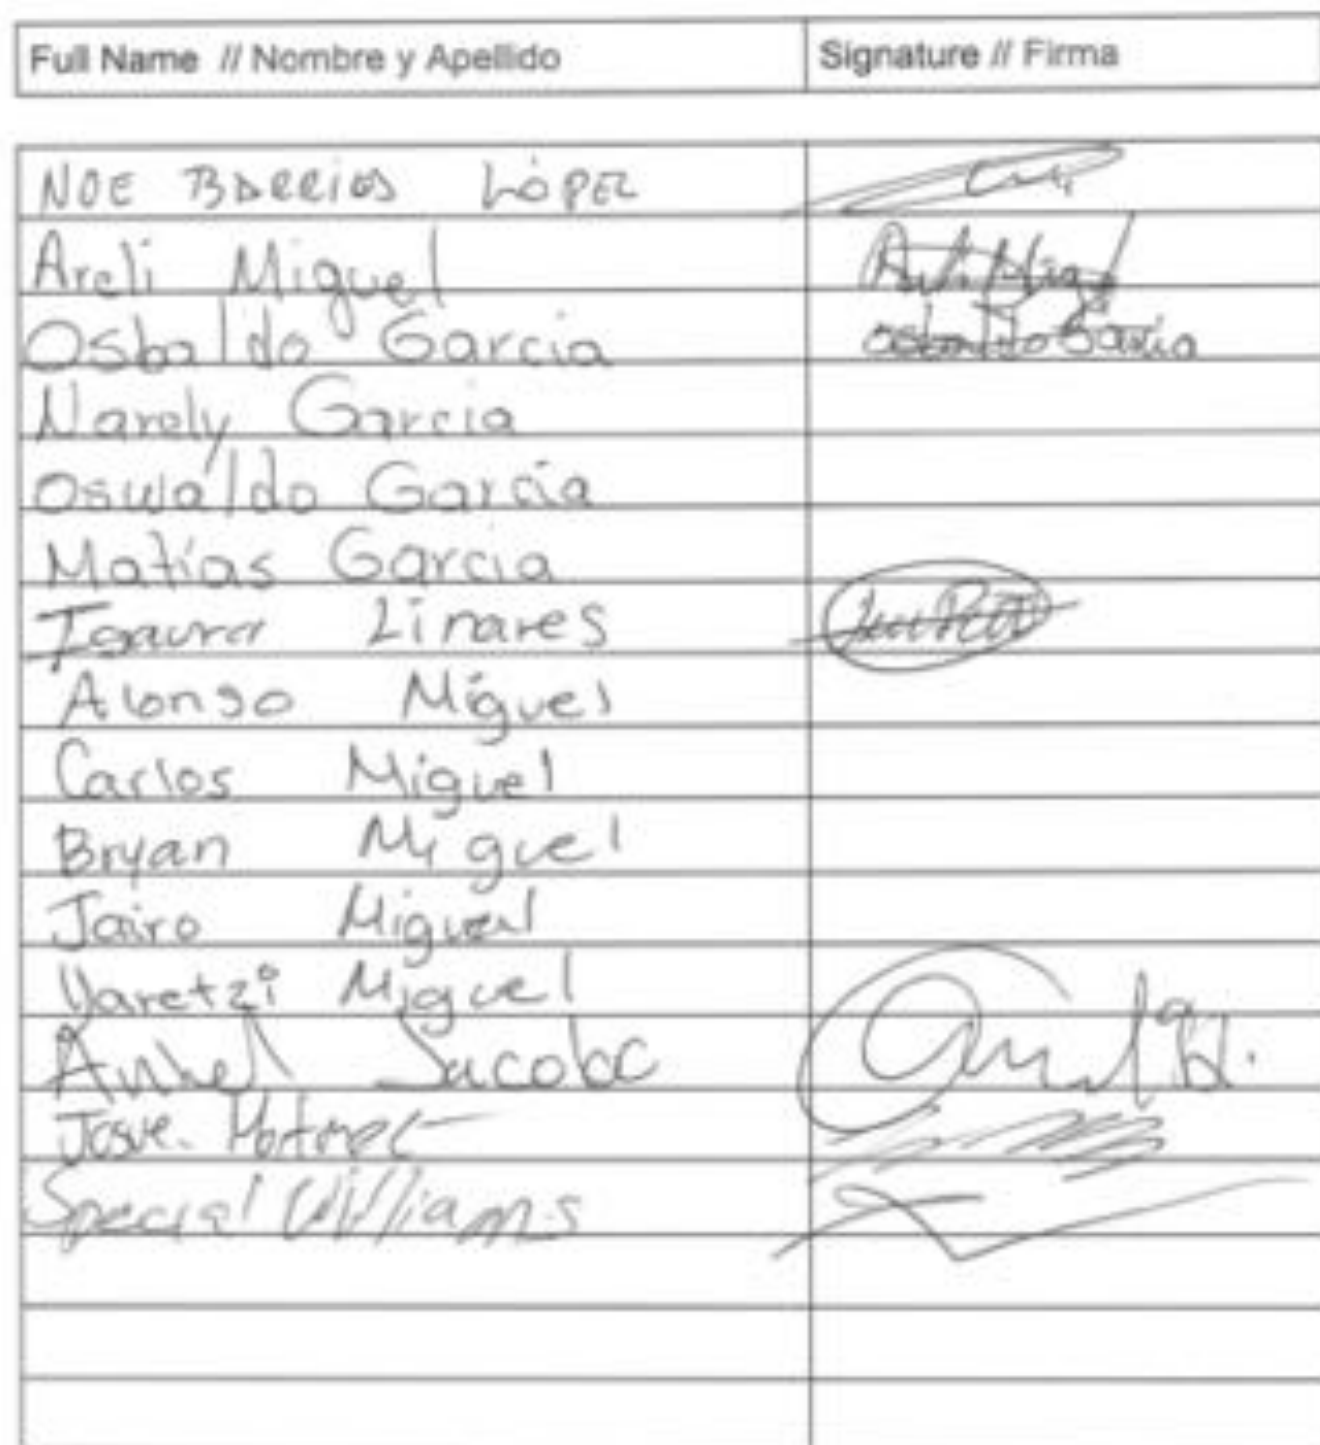 Full Name // Nombre y Apellido Signature // Firma
NOE BARRIOS LÓPEZ
Areli Miguel
Osbaldo Garcia Osbaldo Garcia
Narely Garcia
Oswaldo Garcia
Matías Garcia
Linares
Alonso Miguel
Carlos Miguel
Bryan Miguel
Jairo Miguel
Yaretzi Miguel
Josue
Special Williams